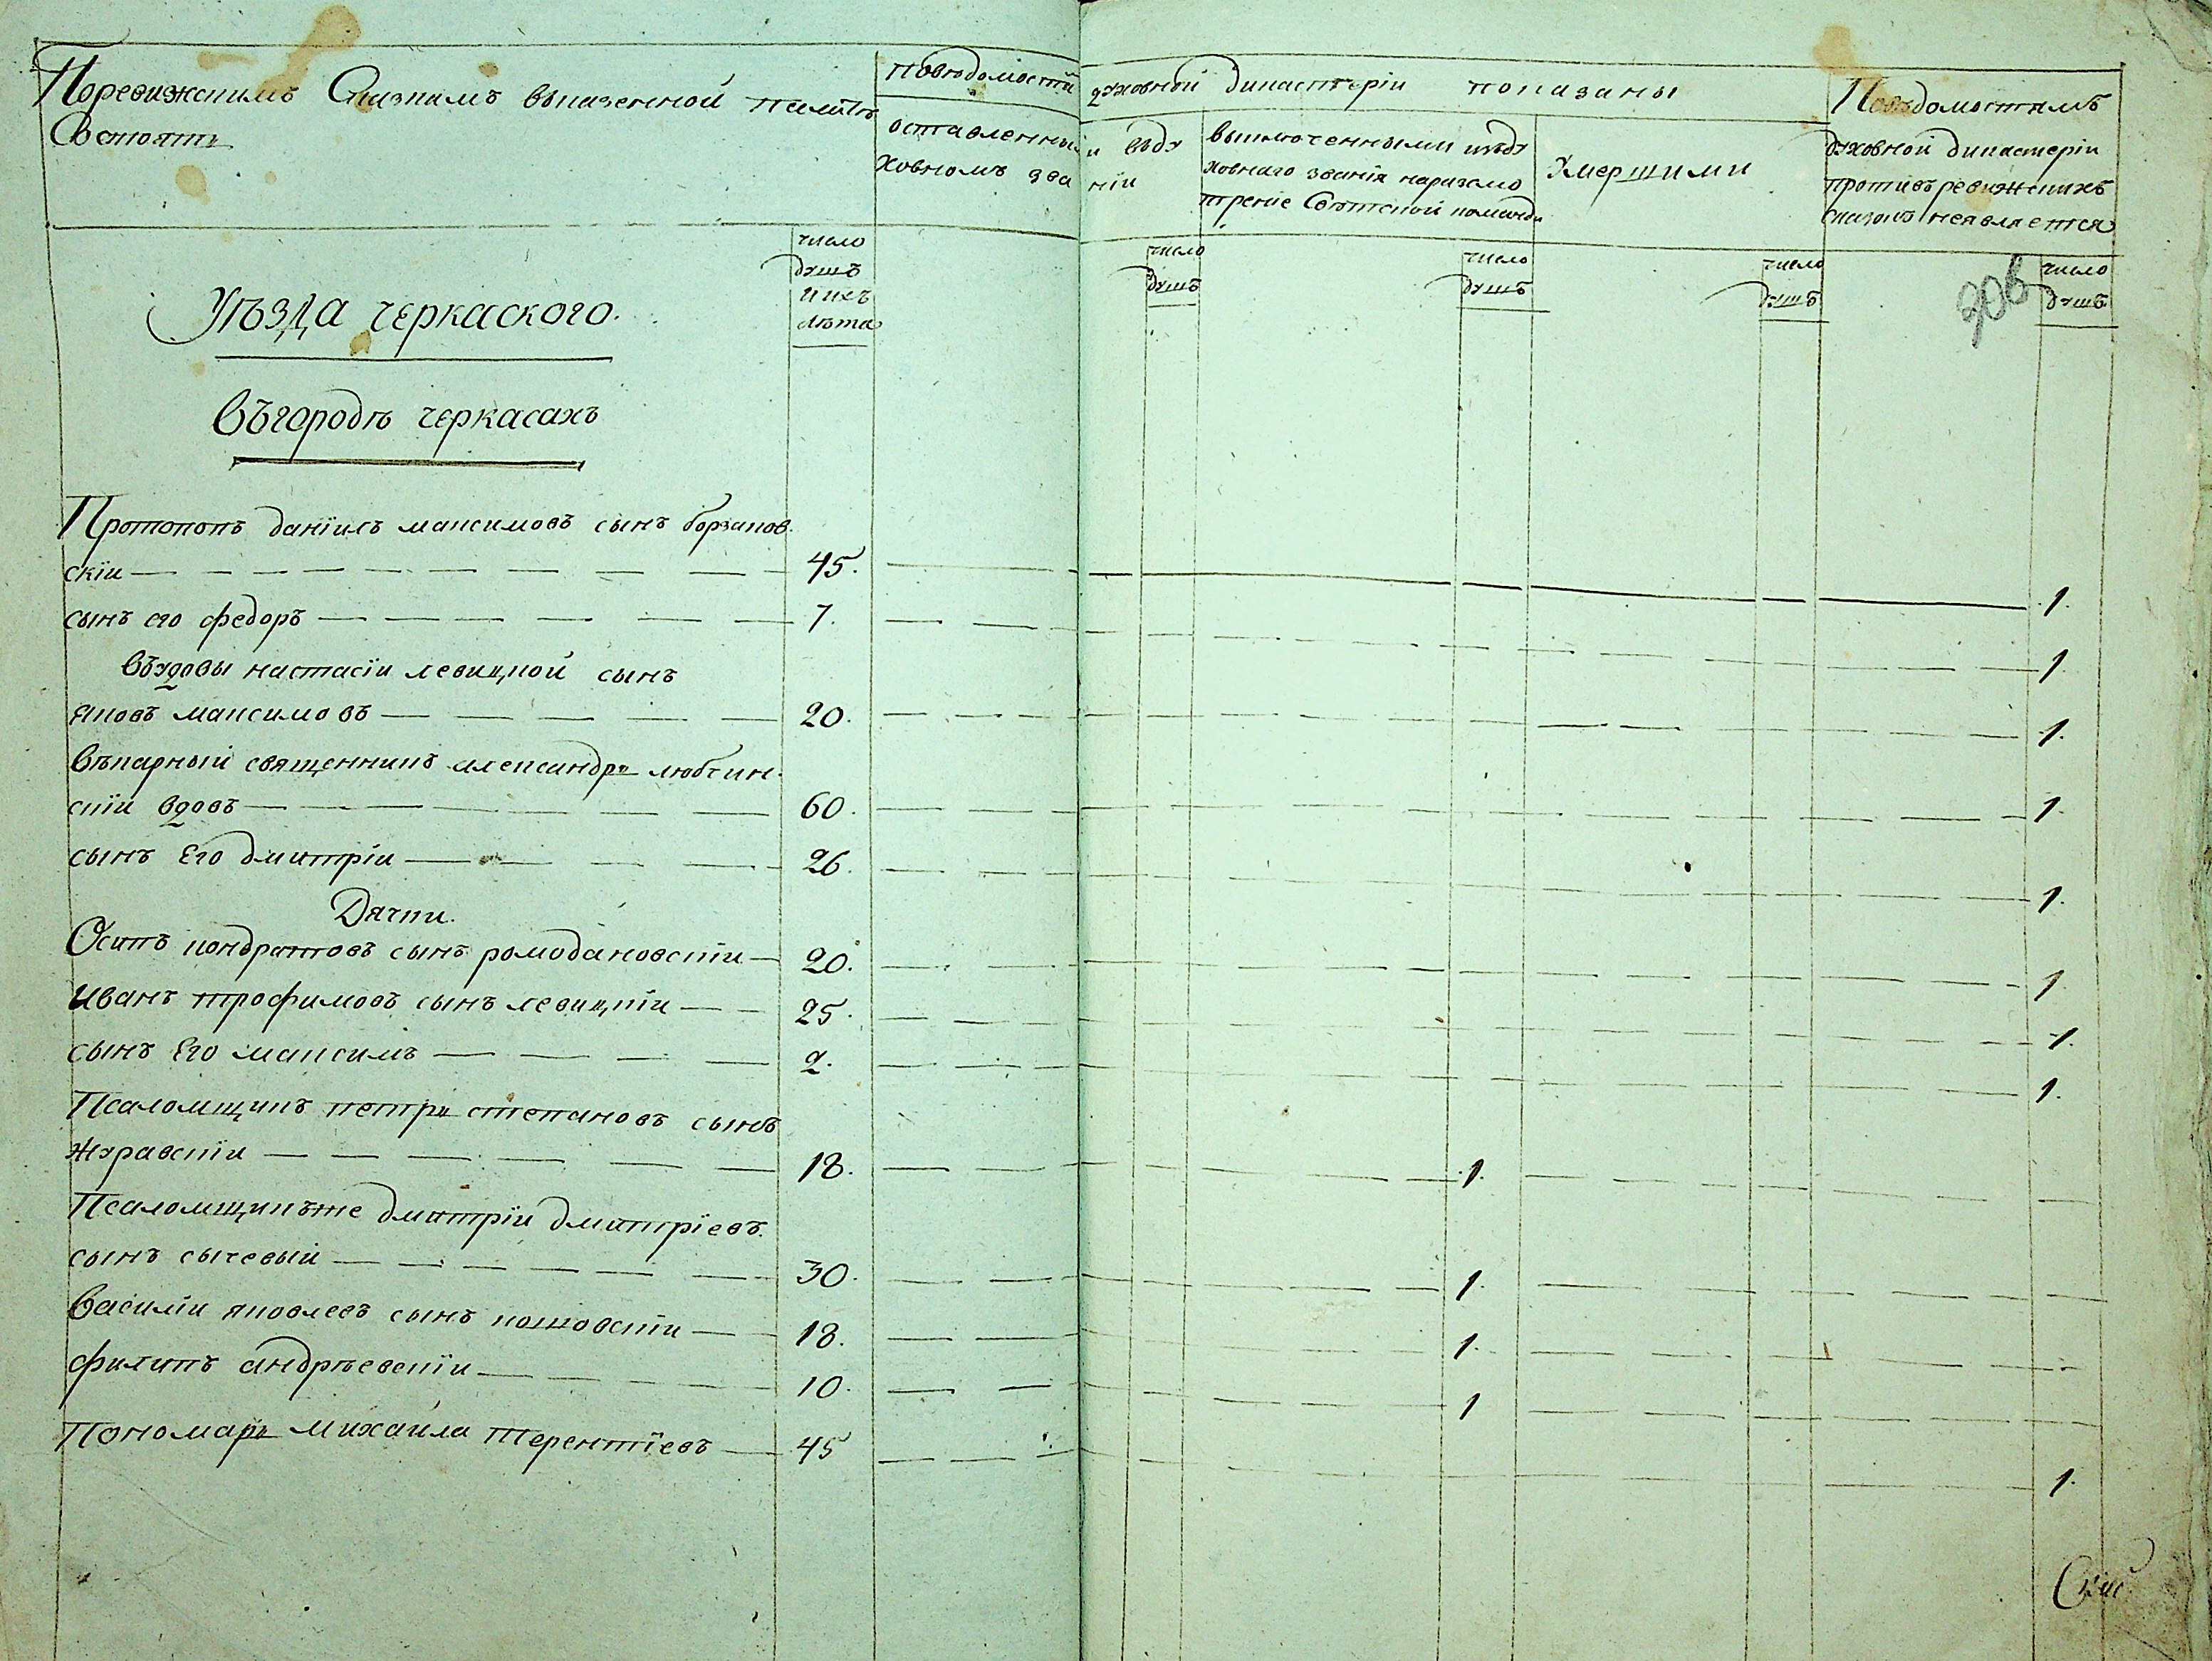 Поревизскимъ Сказкамъ вказенной палатѣ
Состоятъ
Поведомости духовной дикастеріи показаны
оставленныи въду
ховномъ званіи
выключенными изъду
ховнаго званія наразсмо
треніе Свѣтской команди
Умершими
Поведомостямъ
духовной дикастеріи
противъ ревизскихъ
сказокъ неявляется
число
душъ
ихъ
лѣта
число
душъ
число
душъ
число
душъ
306
число
душъ
Уѣзда черкаского.
Въгородѣ черкасахъ
Протопопъ даніилъ максимовъ сынъ борзаков
скіи 45. 1.
сынъ его федоръ 7. 1.
Въдовы настасіи левицкой сынъ
яковъ максимовъ 20. 1.
Викарный священникъ александръ любчин
скіи вдовъ 60. 1.
сынъ Его дмитріи 26. 1.
Дячки.
Осипъ кондратовъ сынъ ромодановскіи 20. 1
Иванъ трофимовъ сынъ левицкіи 25. 1.
сынъ Его максимъ 2. 1.
Псаломщикъ петръ степановъ сынъ
журавскіи 18. 1.
Псаломщикъже дмитріи дмитріевъ
сынъ сычевый 30. 1.
Василіи яковлевъ сынъ кошовскіи 18. 1.
филипъ андрѣевскіи 10. 1
Пономарь михаила терентіевъ 45 1.